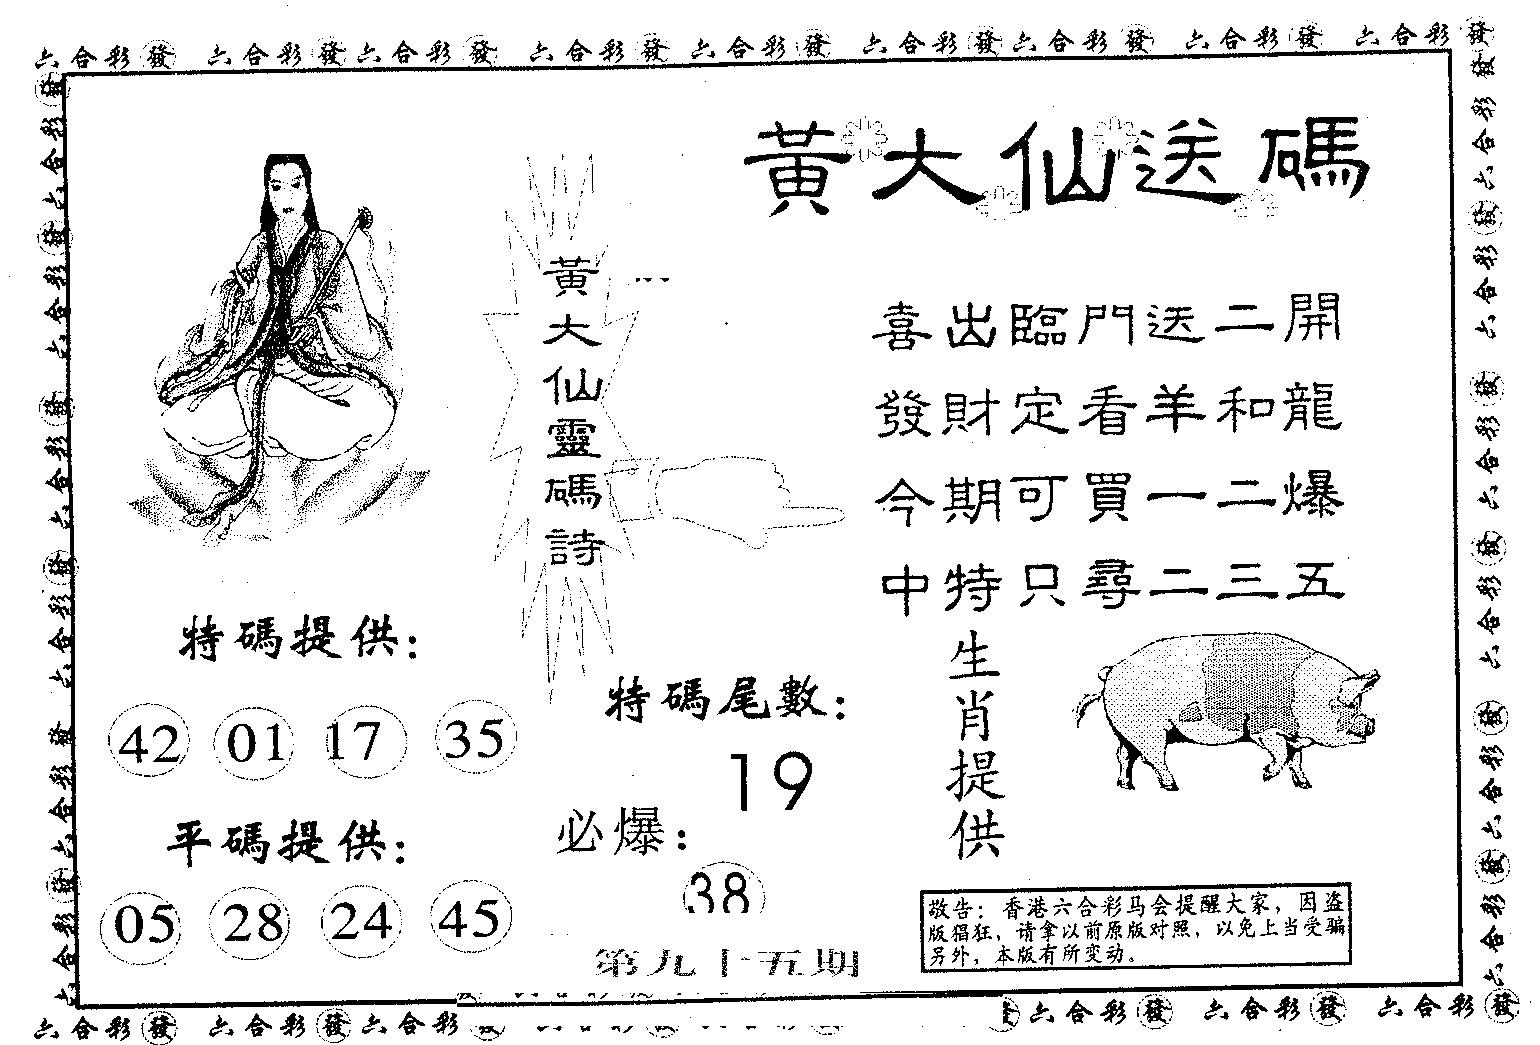 六合彩發 六合彩發 六合彩發 六合彩發 六合彩發 六合彩發 六合彩發 六合彩發 六合彩發
黃大仙送碼
黃大仙靈碼詩
喜出臨門送二開
發財定看羊和龍
今期可買一二爆
中特只尋二三五
特碼提供：
42 01 17 35
平碼提供：
05 28 24 45
特碼尾數：
19
必爆：
38
生肖提供
第九十五期
敬告：香港六合彩马会提醒大家，因盗
版猖狂，请拿以前原版对照，以免上当受骗
另外，本版有所变动。
六合彩發 六合彩發 六合彩發 六合彩發 六合彩發 六合彩發